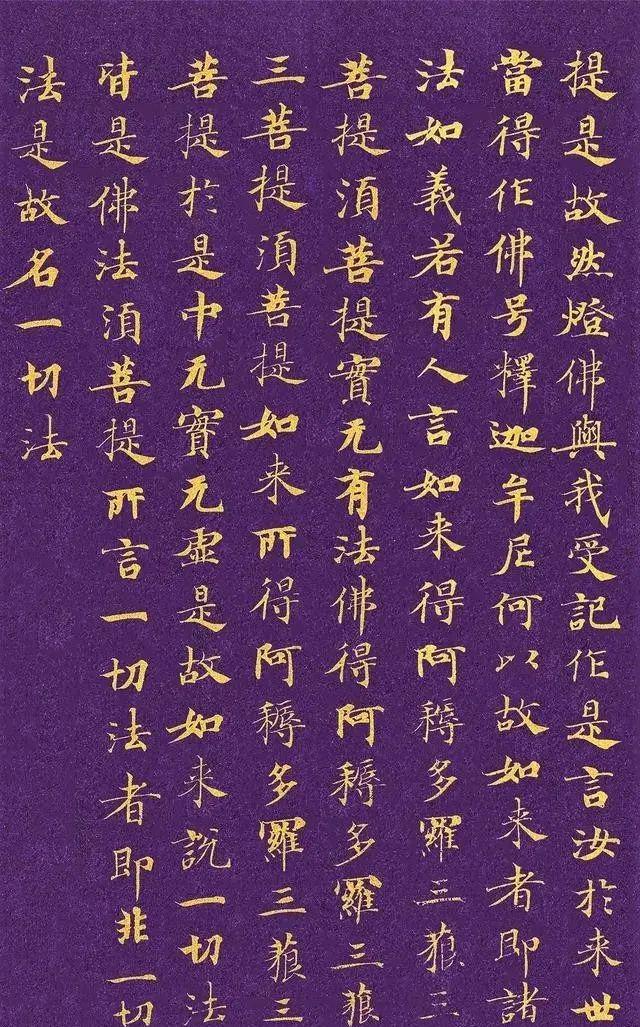 提是故然燈佛與我受記作是言汝於来世
當得作佛号釋迦牟尼何以故如来者即諸
法如義若有人言如来得阿耨多羅三藐三
菩提須菩提實无有法佛得阿耨多羅三藐
三菩提須菩提如来所得阿耨多羅三藐三
菩提於是中无實无虚是故如来說一切法
皆是佛法須菩提所言一切法者即非一切
法是故名一切法